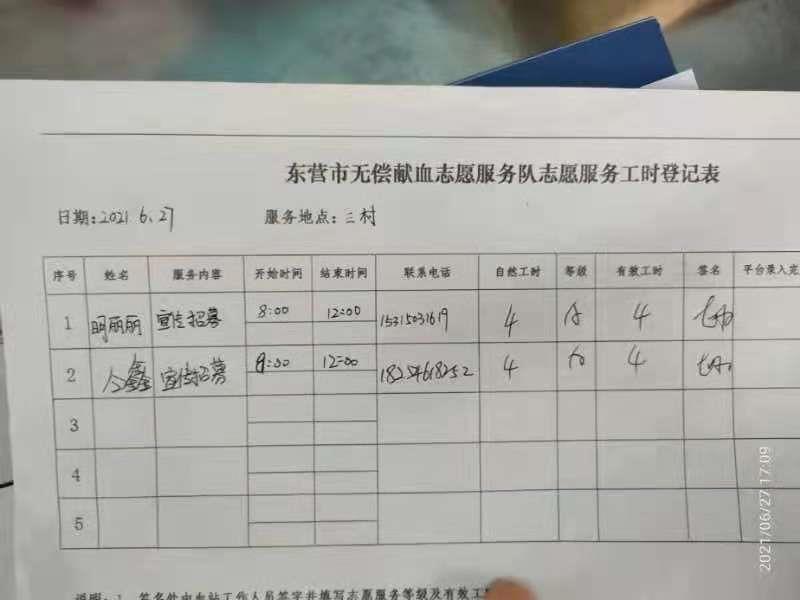 东营市无偿献血志愿服务队志愿服务工时登记表
日期:2021.6.27 服务地点:三村
序号 姓名 服务内容 开始时间 结束时间 联系电话 自然工时 等级 有效工时 签名 平台录入完
1 明丽丽 宣传招募 8:00 12:00 15315031619 4 A 4
2 鑫 宣传招募 8:00 12:00 18254618252 4 4
3
4
5
说明:1、签名处由血站工作人员签字并填写志愿服务等级及有效工
2021/06/27 17:09